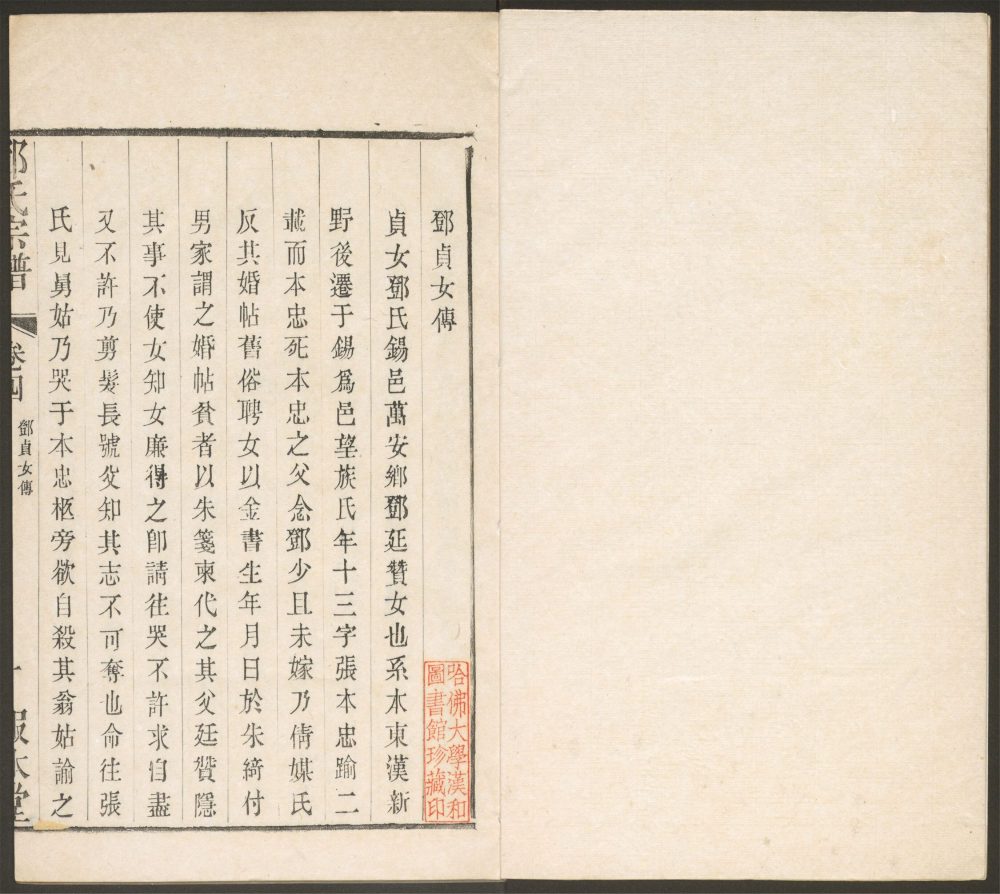 鄧貞女傳
貞女鄧氏錫邑萬安鄉鄧廷贊女也系本東漢新
野後遷于錫爲邑望族氏年十三字張本忠踰二
載而本忠死本忠之父念鄧少且未嫁乃倩媒氏
反其婚帖舊俗聘女以金書生年月日於朱綺付
男家謂之婚帖貧者以朱箋柬代之其父廷贊隱
其事不使女知女廉得之卽請往哭不許求自盡
又不許乃剪髮長號父知其志不可奪也命往張
氏見舅姑乃哭于本忠柩旁欲自殺其翁姑諭之
鄧氏宗譜
卷四
鄧貞女傳
哈佛大學漢和
圖書館珍藏印